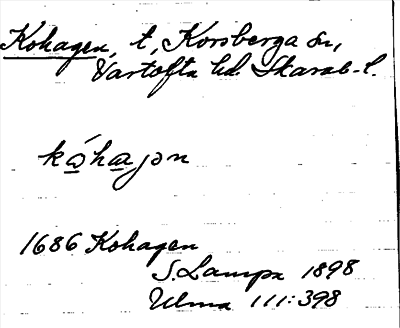 Kohagen, t, Korsberga sn,
Vartofta hd. Skarab. l.
kó̲ha̲ɟən
1686 Kohagen
S. Lampa 1898
Ulma 111:398